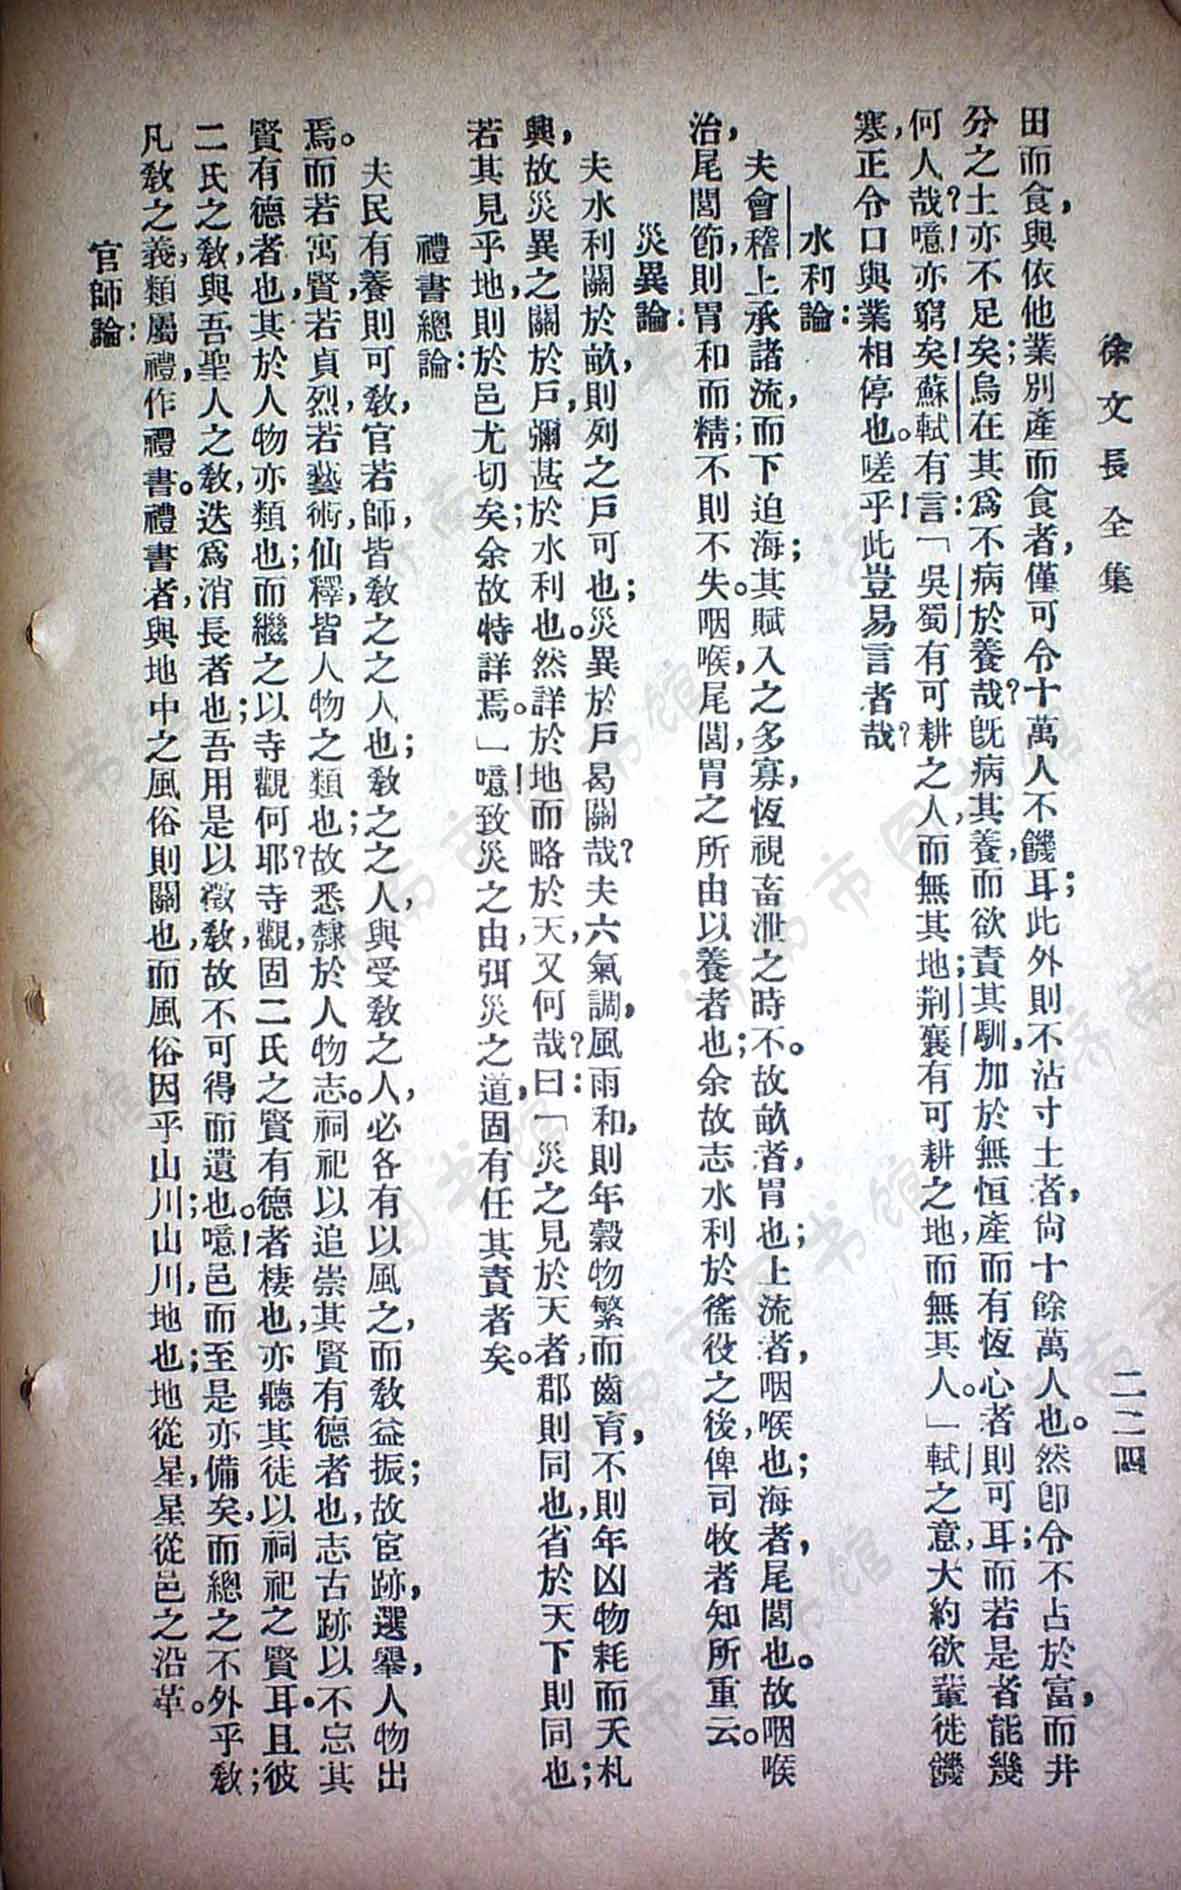 徐文長全集
二二四
田而食，與依他業別產而食者，僅可令十萬人不饑耳；此外則不沾寸土者，尙十餘萬人也。然卽令不占於富，而井
分之土亦不足矣；烏在其爲不病於養哉？旣病其養，而欲責其馴，加於無恒產而有恆心者，則可耳；而若是者能幾
何人哉？噫！亦窮矣！蘇軾有言：「吳蜀有可耕之人，而無其地；荆襄有可耕之地，而無其人。」軾之意，大約欲輦徙饑
寒，正令口與業相停也。嗟乎！此豈易言者哉？
水利論：
夫會稽上承諸流，而下迫海；其賦入之多寡，恆視畜泄之時不。故畝者，胃也；上流者，咽喉也；海者，尾閭也。故咽喉
治，尾閭節，則胃和而精；不則不失。咽喉，尾閭，胃之所由以養者也；余故志水利於徭役之後，俾司牧者知所重云。
災異論：
夫水利關於畝，則列之戶可也；災異於戶曷關哉？夫六氣調，風雨和，則年穀物繁而齒育，不則年凶物耗而天札；
興，故災異之關於戶，彌甚於水利也。然詳於地而略於天，又何哉？曰：「災之見於天者，郡則同也，省於天下則同也；
若其見乎地，則於邑尤切矣；余故特詳焉。」噫！致災之由，弭災之道，固有任其責者矣。
禮書總論：
夫民有養則可敎，官若師，皆敎之之人也；敎之之人，與受敎之人，必各有以風之，而敎益振；故宦跡，選舉，人物出
焉。而若寓賢，若貞烈，若藝術，仙釋，皆人物之類也；故悉隸於人物志。祠祀以追崇其賢有德者也，志古跡以不忘其
賢有德者也，其於人物亦類也；而繼之以寺觀何耶？寺觀，固二氏之賢有德者棲也，亦聽其徒以祠祀之賢耳。且彼
二氏之敎，與吾聖人之敎，迭爲消長者也；吾用是以徵敎，故不可得而遺也。噫！邑而至是亦備矣，而總之不外乎敎；
凡敎之義，類屬禮，作禮書。禮書者，與地中之風俗則關也，而風俗因乎山川；山川，地也；地從星，星從邑之沿革。
官師論：